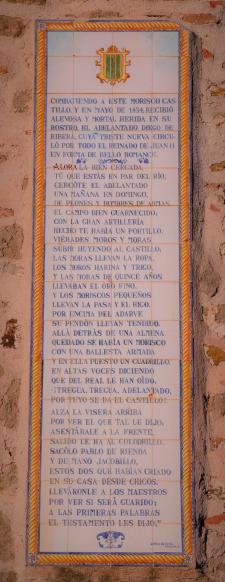 COMBATIENDO A ESTE MORISCO CAS-
TILLO, Y EN MAYO DE 1434, RECIBIÓ
ALEVOSA Y MORTAL HERIDA EN SU
ROSTRO, EL ADELANTADO DIEGO DE
RIBERA, CUYA TRISTE NUEVA CIRCU-
LÓ POR TODO EL REINADO DE JUAN II
EN FORMA DE BELLO ROMANCE.
ALORA LA BIEN CERCADA,
TÚ QUE ESTÁS EN PAR DEL RÍO,
CERCÓTE EL ADELANTADO
UNA MAÑANA EN DOMINGO,
DE PEONES Y HOMBRES DE ARMAS
EL CAMPO BIEN GUARNECIDO;
CON LA GRAN ARTILLERÍA
HECHO TE HABÍA UN PORTILLO.
VIÉRADES MOROS Y MORAS
SUBIR HUYENDO AL CASTILLO;
LAS MORAS LLEVAN LA ROPA,
LOS MOROS HARINA Y TRIGO,
Y LAS MORAS DE QUINCE AÑOS
LLEVABAN EL ORO FINO,
Y LOS MORISCOS PEQUEÑOS
LLEVAN LA PASA Y EL HIGO.
POR ENCIMA DEL ADARVE
SU PENDÓN LLEVAN TENDIDO.
ALLÁ DETRÁS DE UNA ALMENA
QUEDADO SE HABÍA UN MORISCO
CON UNA BALLESTA ARMADA
Y EN ELLA PUESTO UN CUADRILLO
EN ALTAS VOCES DICIENDO
QUE DEL REAL LE HAN OÍDO.
-¡TREGUA, TREGUA, ADELANTADO,
POR TUYO SE DA EL CASTILLO!
ALZA LA VISERA ARRIBA
POR VER EL QUE TAL LE DIJO;
ASESTÁRALE A LA FRENTE,
SALIDO LE HA AL COLODRILLO.
SACÓLO PABLO DE RIENDA
Y DE MANO JACOBILLO,
ESTOS DOS QUE HABÍAN CRIADO
EN SU CASA DESDE CHICOS.
LLEVÁRONLE A LOS MAESTROS
POR VER SI SERÁ GUARIDO;
A LAS PRIMERAS PALABRAS
EL TESTAMENTO LES DIJO."